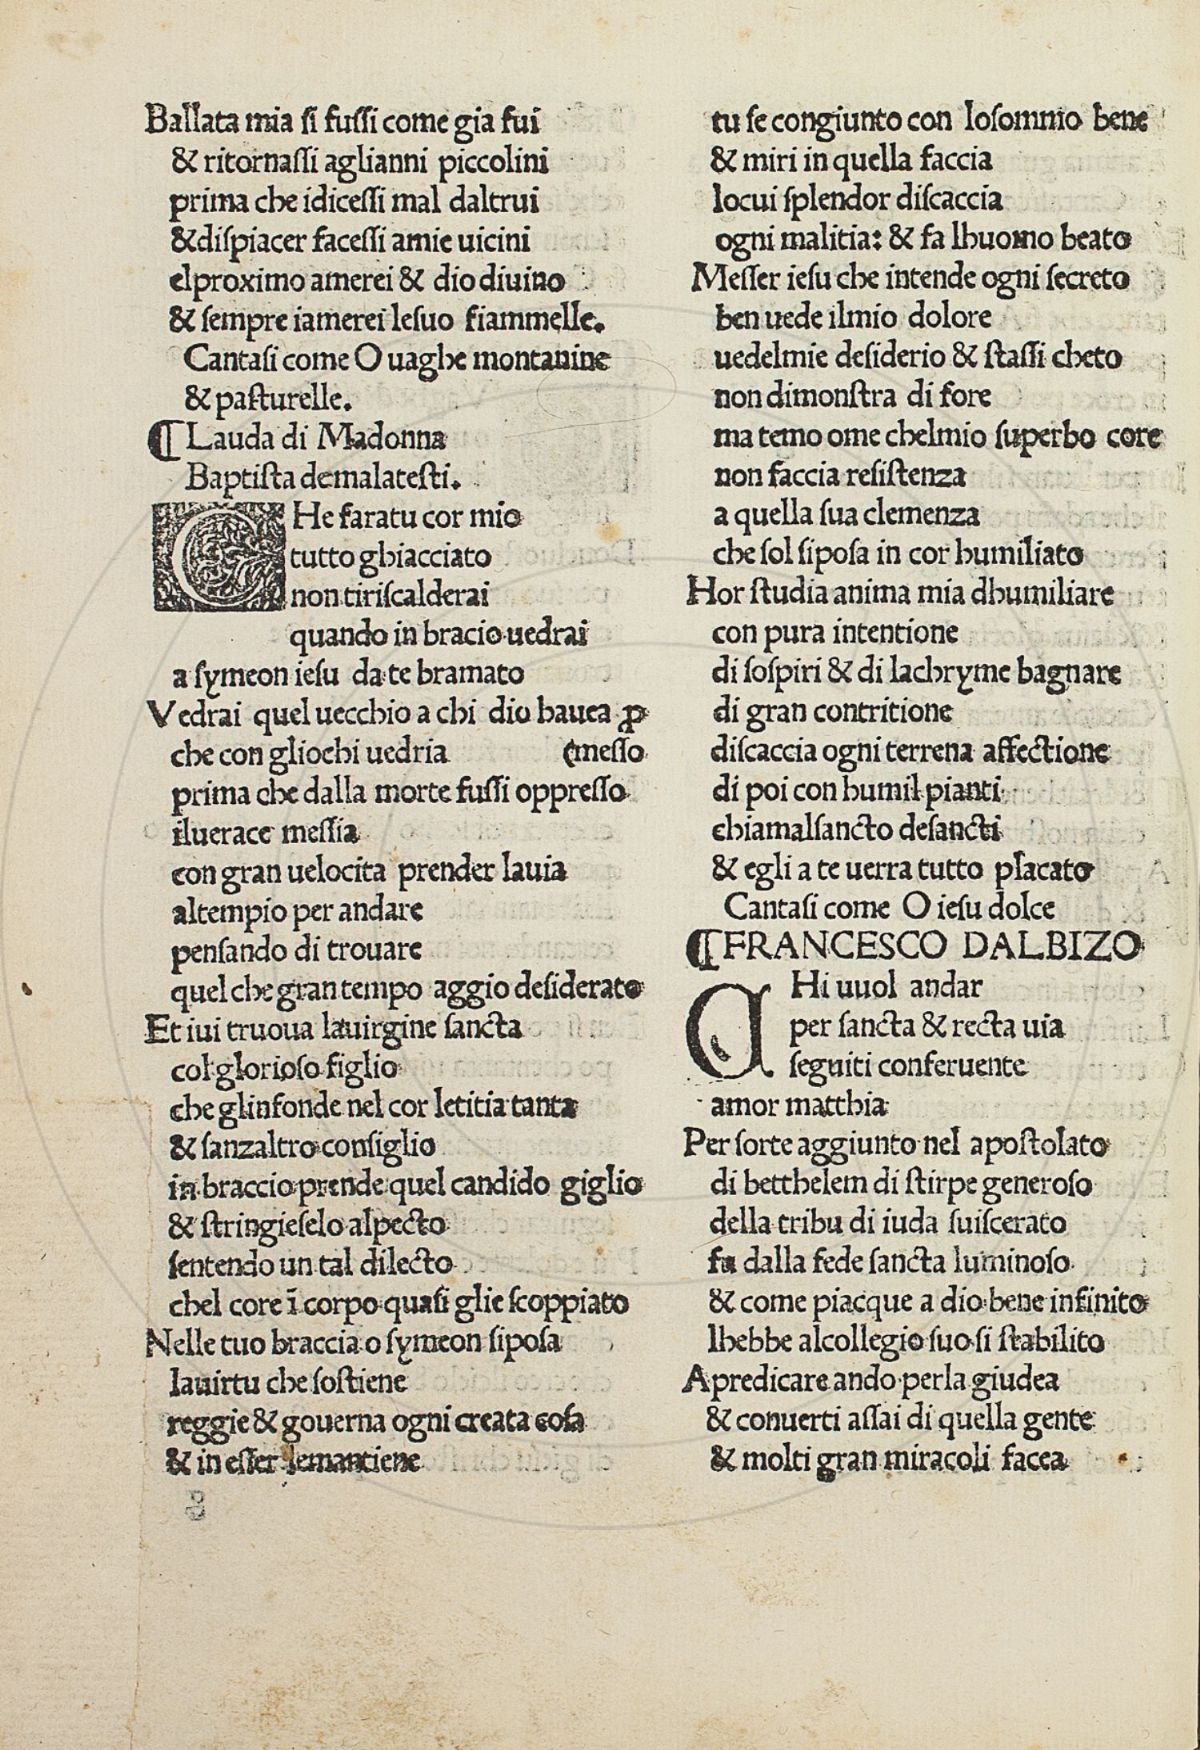 Ballata mia ſi fuſſi come gia fui
& ritornaſſi aglianni piccolini
prima che idiceſſi mal daltrui
&diſpiacer faceſſi amie uicini
elproximo amerei & dio diuino
& ſempre iamerei leſuo fiammelle.
Cantaſi come O uaghe montanine
& paſturelle.
¶ Lauda di Madonna
Baptiſta demalateſti.
CHe faratu cor mio
tutto ghiacciato
non tiriſcalderai
quando in bracio uedrai
a ſymeon ieſu da te bramato
Vedrai quel uecchio a chi dio hauea ꝑ
che con gliochi uedria (meſſo
prima che dalla morte fuſſi oppreſſo
iluerace meſſia
con gran uelocita prender lauia
altempio per andare
penſando di trouare
quel che gran tempo aggio deſiderato
Et iui truoua lauirgine ſancta
col glorioſo figlio
che glinfonde nel cor letitia tanta
& ſanzaltro conſiglio
in braccio prende quel candido giglio
& ſtringieſelo alpecto
ſentendo un tal dilecto
chel core ī corpo quaſi glie ſcoppiato
Nelle tuo braccia o ſymeon ſipoſa
lauirtu che ſoſtiene
reggie & gouerna ogni creata coſa
& in eſſer lemantiene
tu ſe congiunto con loſomnio bene
& miri in quella faccia
locui ſplendor diſcaccia
ogni malitia: & fa lhuomo beato
Meſſer ieſu che intende ogni ſecreto
ben uede ilmio dolore
uedelmie deſiderio & ſtaſſi cheto
non dimonſtra di fore
ma temo ome chelmio ſuperbo core
non faccia reſiſtenza
a quella ſua clemenza
che ſol ſipoſa in cor humiliato
Hor ſtudia anima mia dhumiliare
con pura intentione
di ſoſpiri & di lachryme bagnare
di gran contritione
diſcaccia ogni terrena affectione
di poi con humil pianti
chiamalſancto deſancti
& egli a te uerra tutto placato
Cantaſi come O ieſu dolce
¶FRANCESCO DALBIZO
CHi uuol andar
per ſancta & recta uia
ſeguiti conferuente
amor matthia
Per ſorte aggiunto nel apoſtolato
di betthelem di ſtirpe generoſo
della tribu di iuda ſuiſcerato
fu dalla fede ſancta luminoſo
& come piacque a dio bene infinito
lhebbe alcollegio ſuo ſi ſtabilito
A predicare ando perla giudea
& conuerti aſſai di quella gente
& molti gran miracoli facea